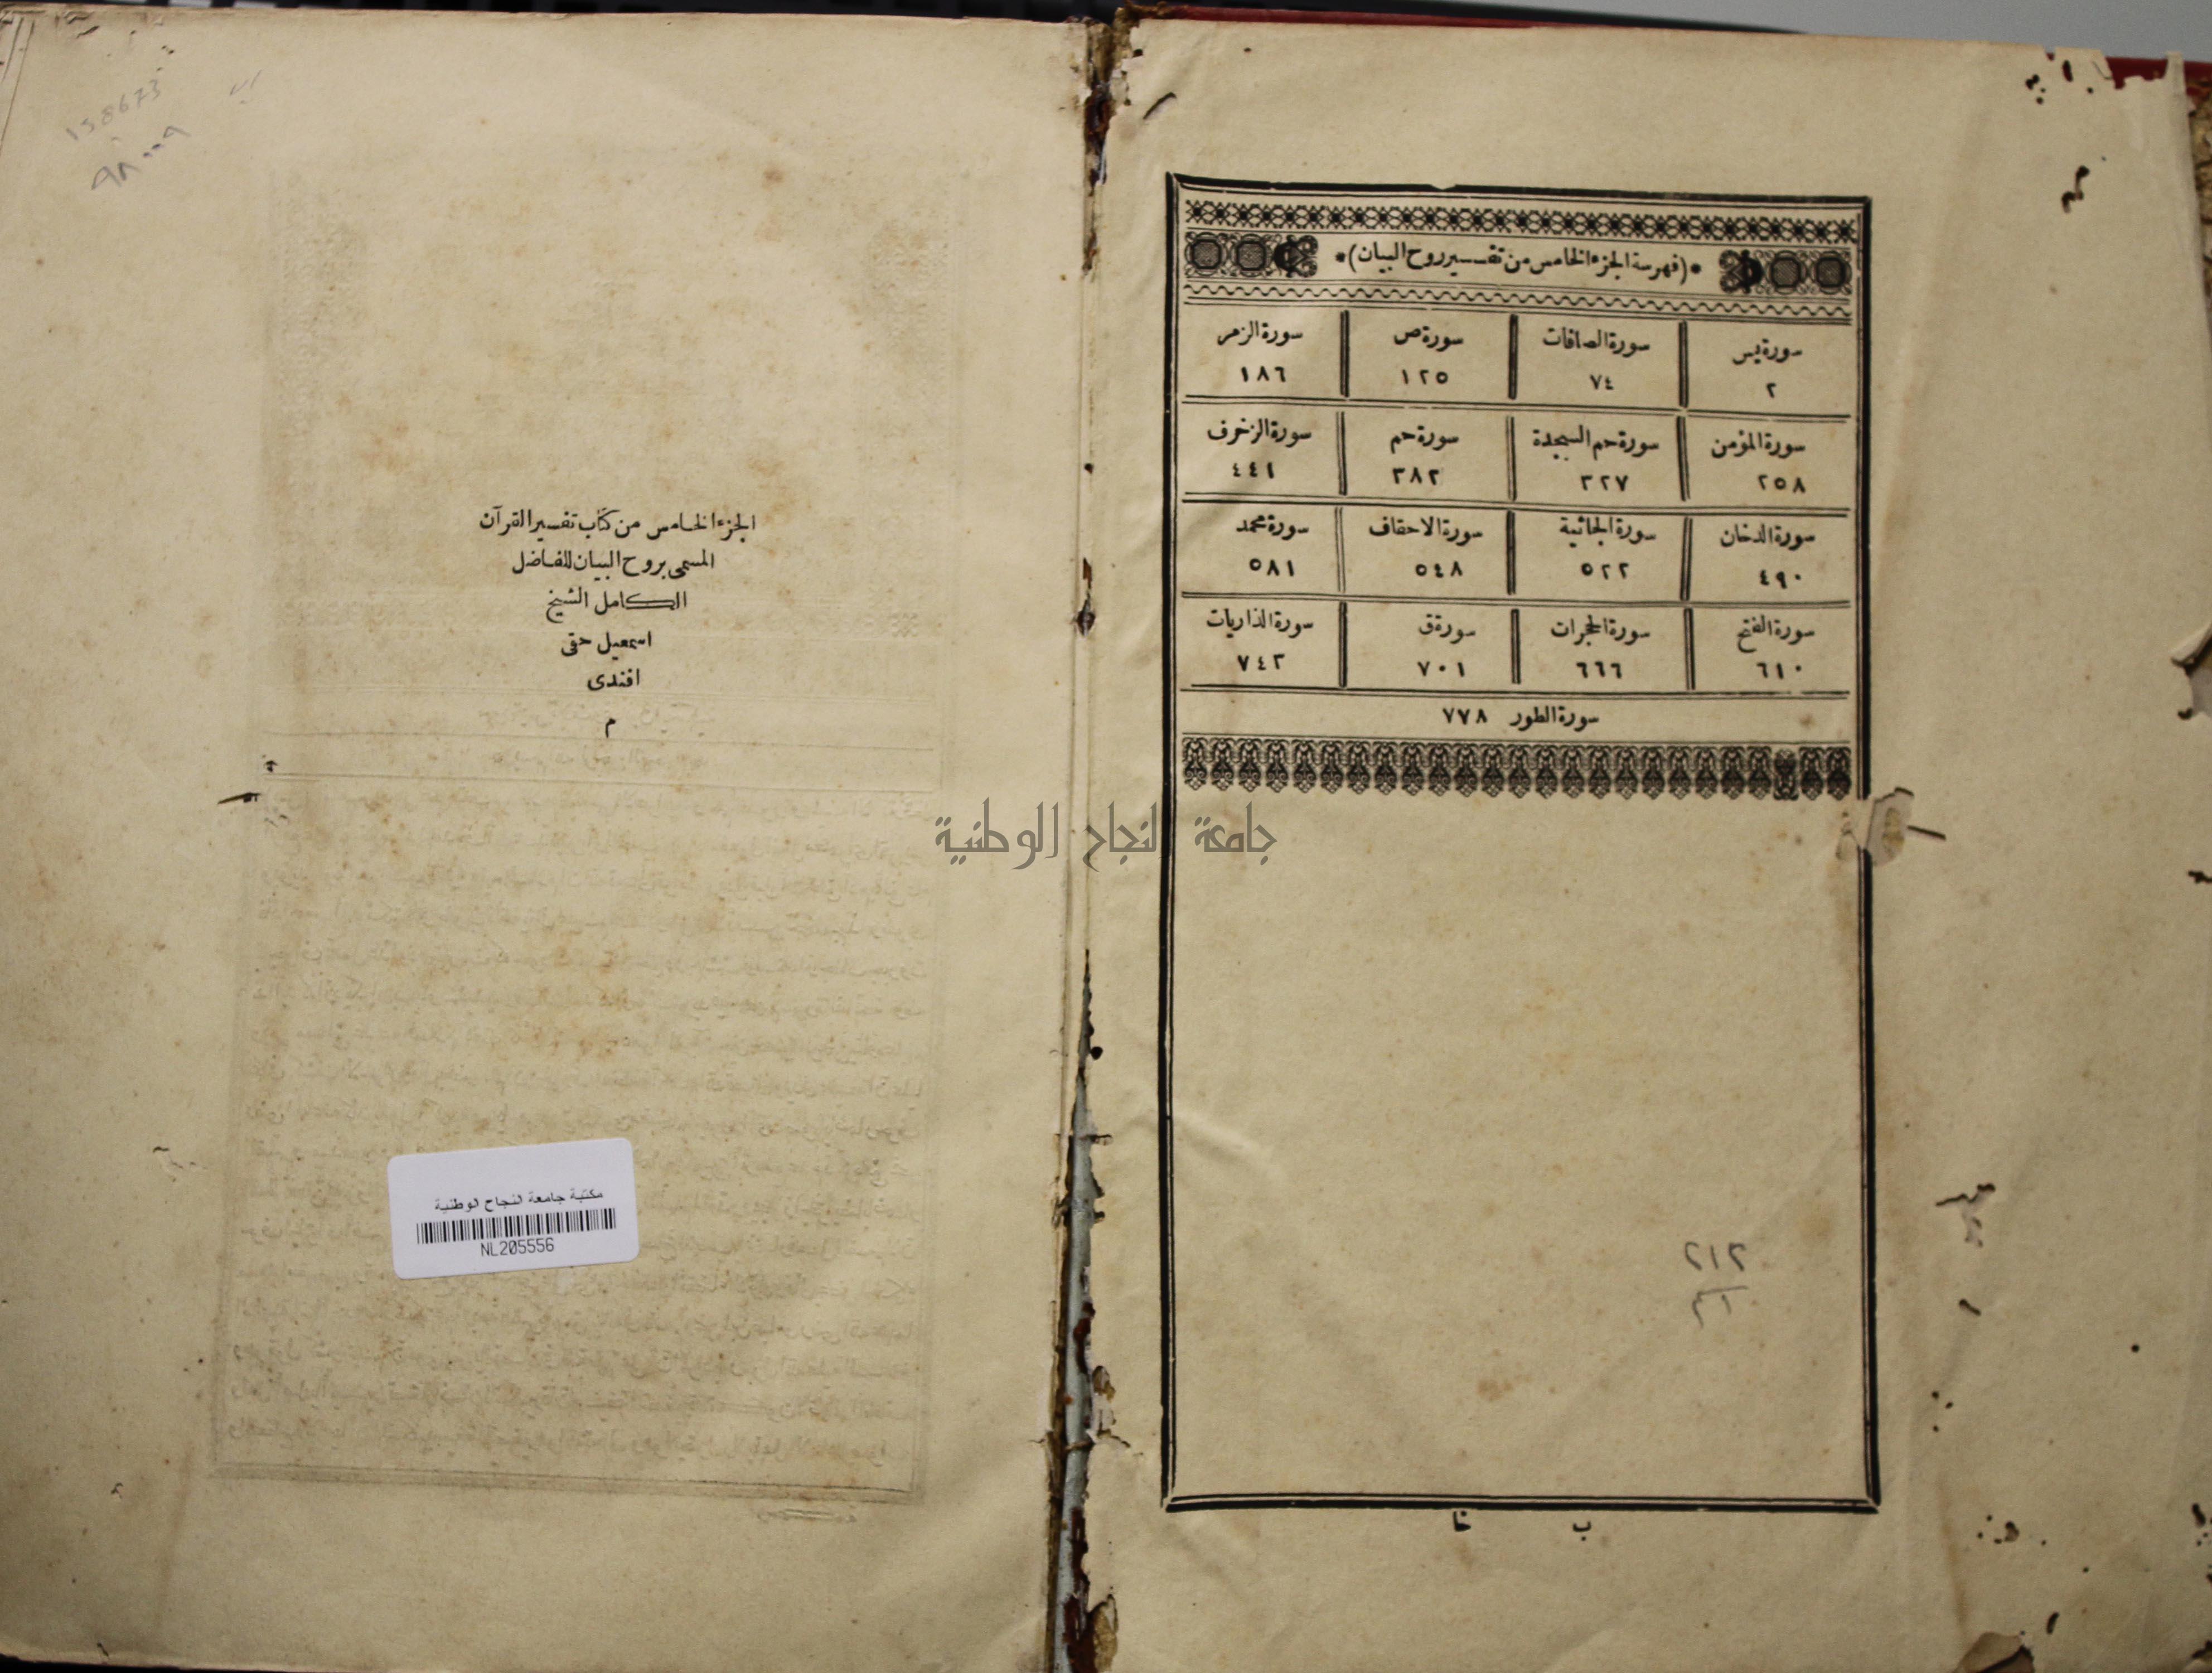 *(فهرسة الجزء الخامس من تفسير روح البيان)*
سورة يس سورة الصافات سورة ص سورة الزمر
٢ ٧٤ ١٢٥ ١٨٦
سورة المؤمن سورة حم السجدة سورة حم سورة الزخرف
٢٥٨ ٣٢٧ ٣٨٢ ٤٤١
سورة الدخان سورة الجاثية سورة الاحقاف سورة محمد
٤٩٠ ٥٢٢ ٥٤٨ ٥٨١
سورة الفتح سورة الحجرات سورة ق سورة الذاريات
٦١٠ ٦٦٦ ٧٠١ ٧٤٣
سورة الطور ٧٧٨
ب خا
جامعة النجاح الوطنية
الجزء الخامس من كتاب تفسير القرآن
المسمى بروح البيان للفاضل
الكامل الشيخ
اسمعيل حقى
افندى
م
مكتبة جامعة النجاح الوطنية
NL205556